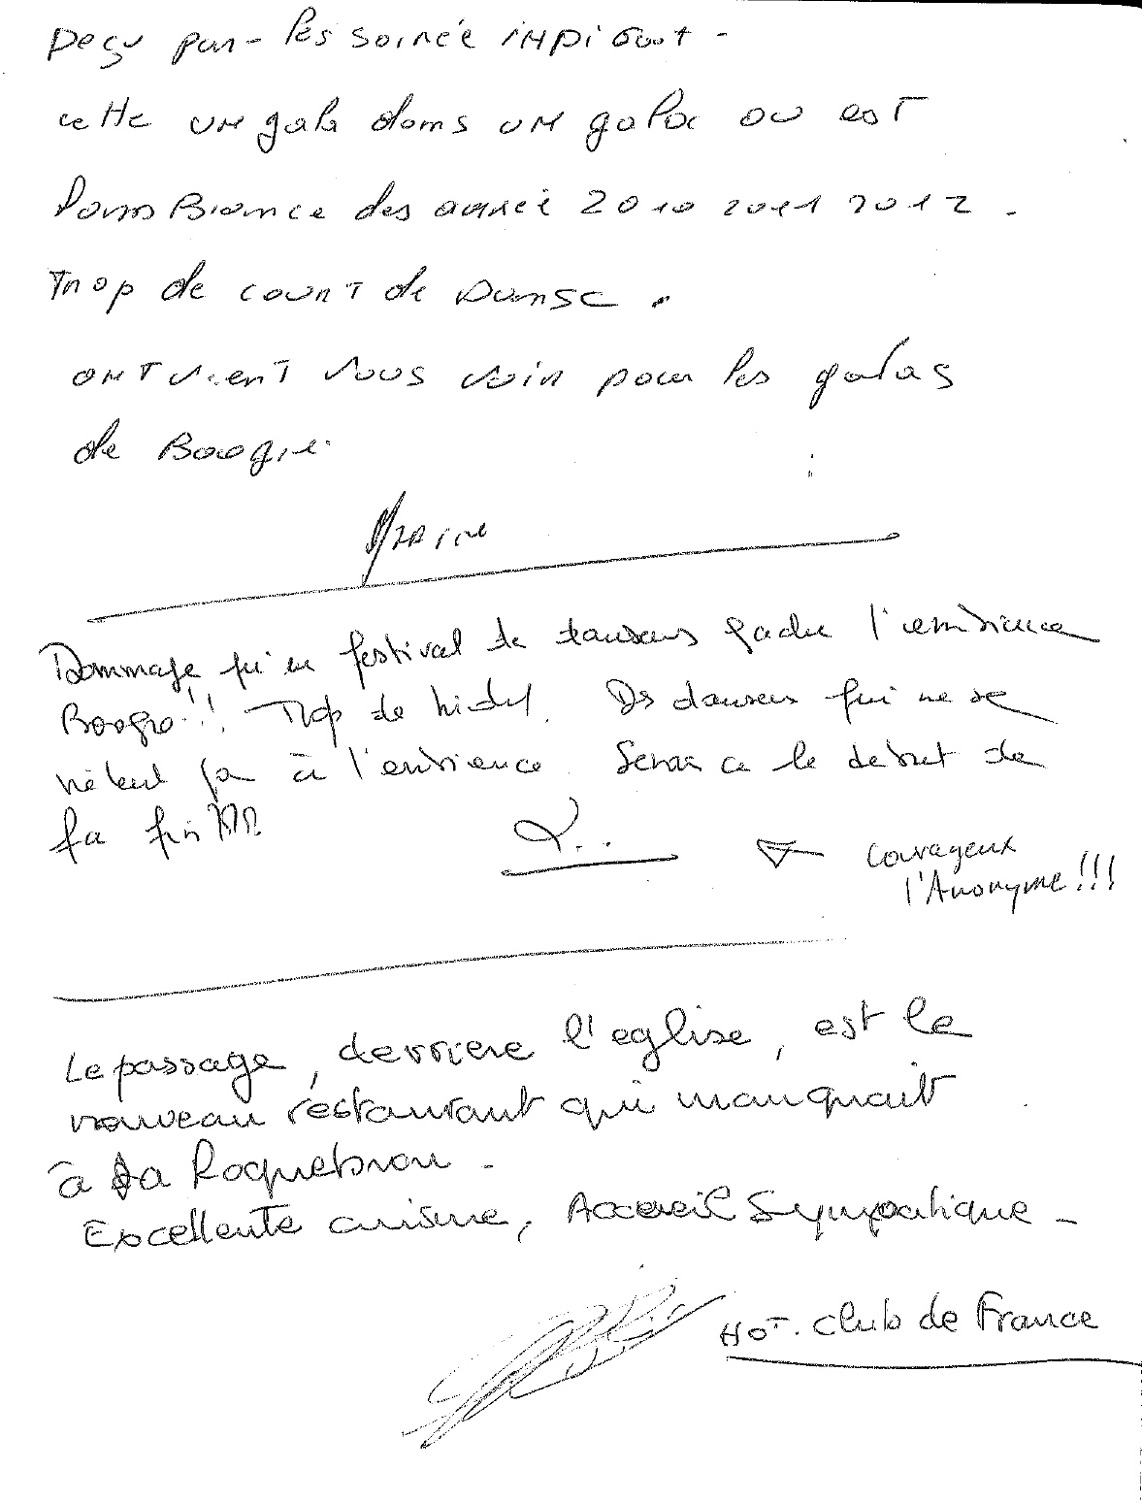 Deçu par - les soirée
cette un gala dans un gala ou est
l'ambiance des année 2010 2011 2012 .
Trop de court de Danse .
ont vient vous voir pour les galas
de Boogie.
Dommage qu'un festival de danseurs gache l'ambiance
Boogie !! Trop de Ds danseurs qui ne se
mêlent pas à l'ambiance. Serais ce le debut de
la fin ???
Courageux
l'Anonyme !!!
Le passage, derriere l'eglise, est le
nouveau restaurant qui manquait
à la Roquebrou -
Excellente cuisine, Accueil Sympathique -
Hot. Club de France